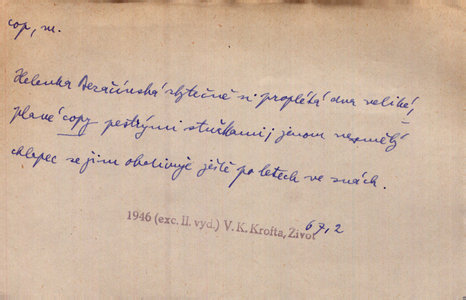 cop, m.
Helenka Bezačínská zbytečně si proplétá dva veliké,
plavé copy pestrými stužkami; jenom nesmělý
chlapec se jim obdivuje ještě po letech ve snách.
1946 (exc. II. vyd.) V. K. Krofta, Život 67, 2